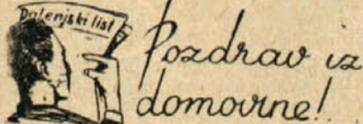 Dolenjski list
Pozdrav iz
domovine!